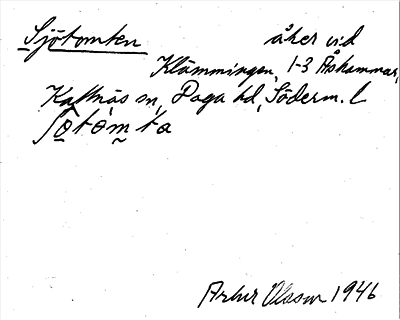 Sjötomten åker vid
Klämmingen, 1-3 Åskammar,
Kattnäs sn, Daga hd, Söderm. l
ʃo̰tòm̰ta
Artur Olsson 1946